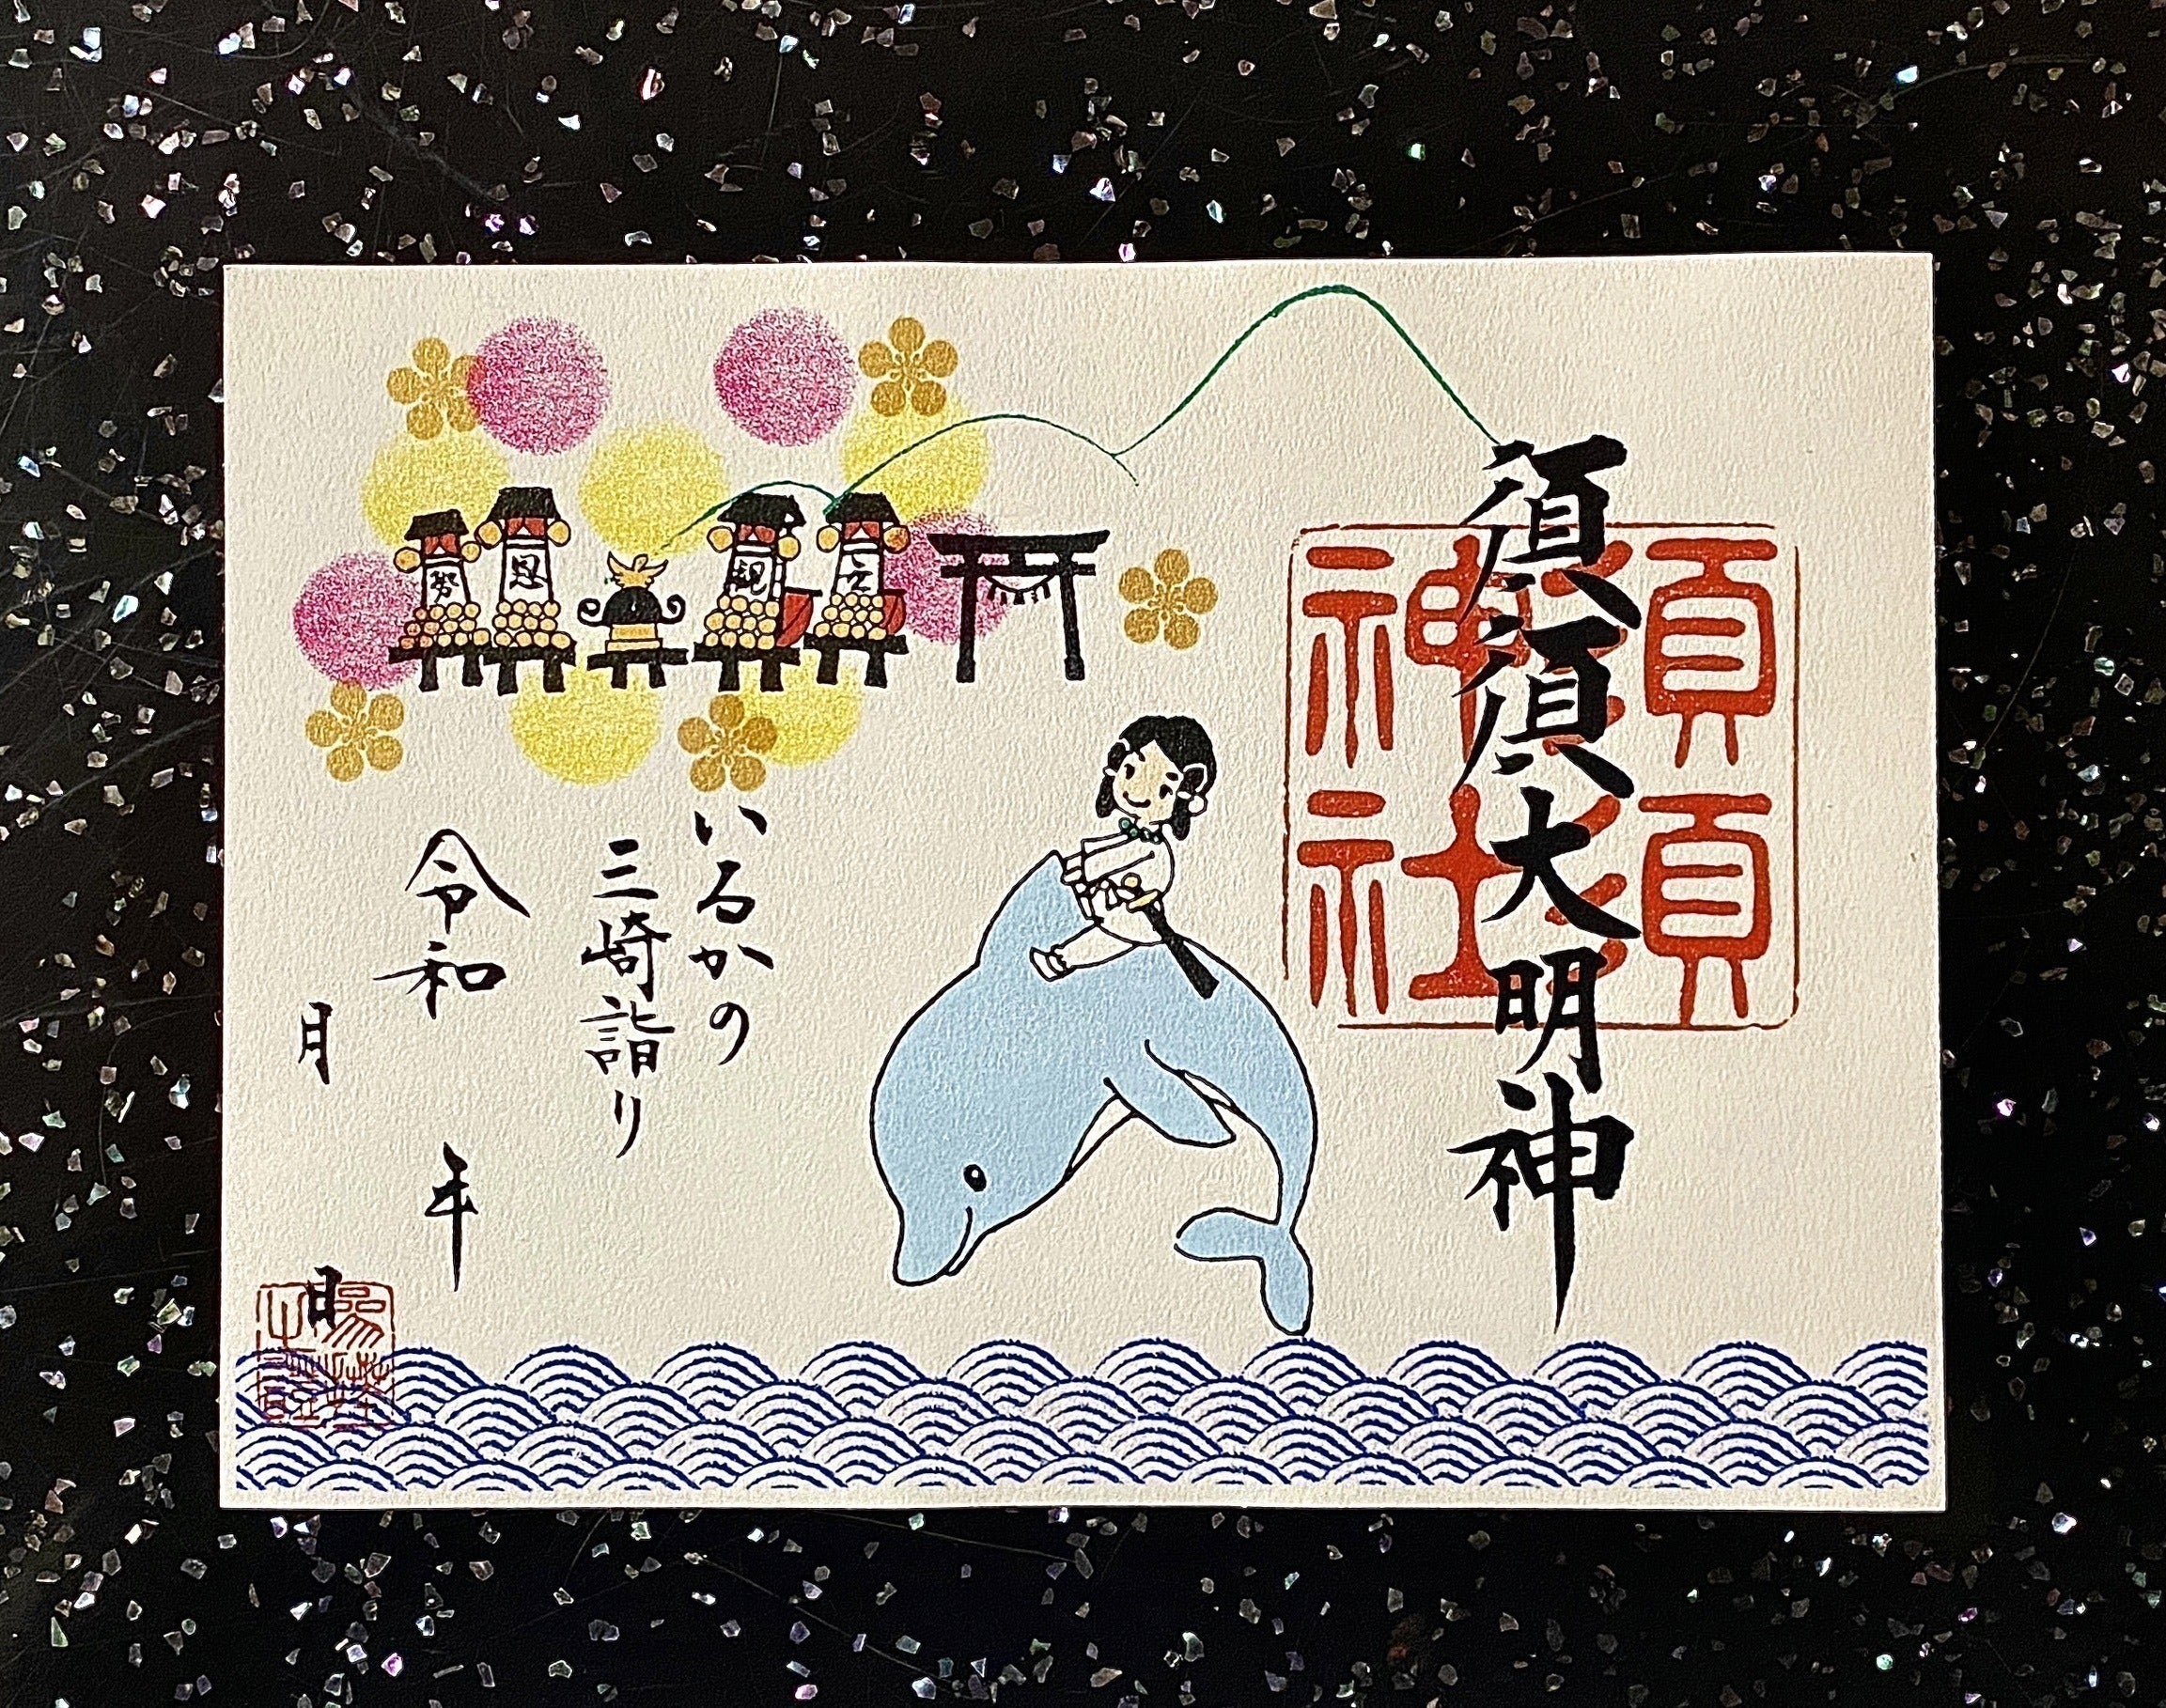 須須大明神
須須
神社
いるかの
三崎詣り
令和 年
月 日